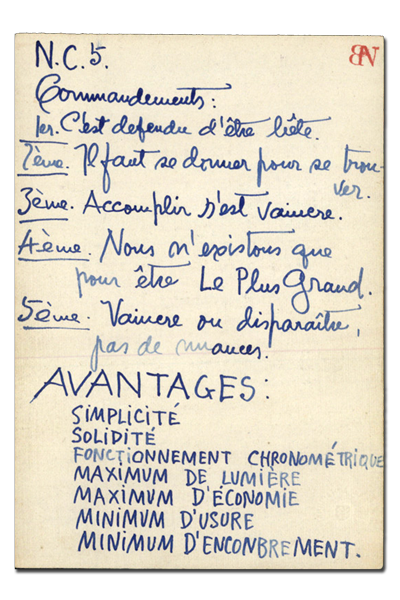 N.C.5.
BN
Commandements:
1er. C'est defendu d'être bête.
2ème. Il faut se donner pour se trou-
ver.
3ème. Accomplir n'est vaincre.
4ème. Nous n'existons que
pour être Le Plus Grand.
5ème. Vaincre ou disparaître,
pas de nuances.
AVANTAGES:
SIMPLICITÉ
SOLIDITÉ
FONCTIONNEMENT CHRONOMÉTRIQUE
MAXIMUM DE LUMIÈRE
MAXIMUM D'ÉCONOMIE
MINIMUM D'USURE
MINIMUM D'ENCONBREMENT.